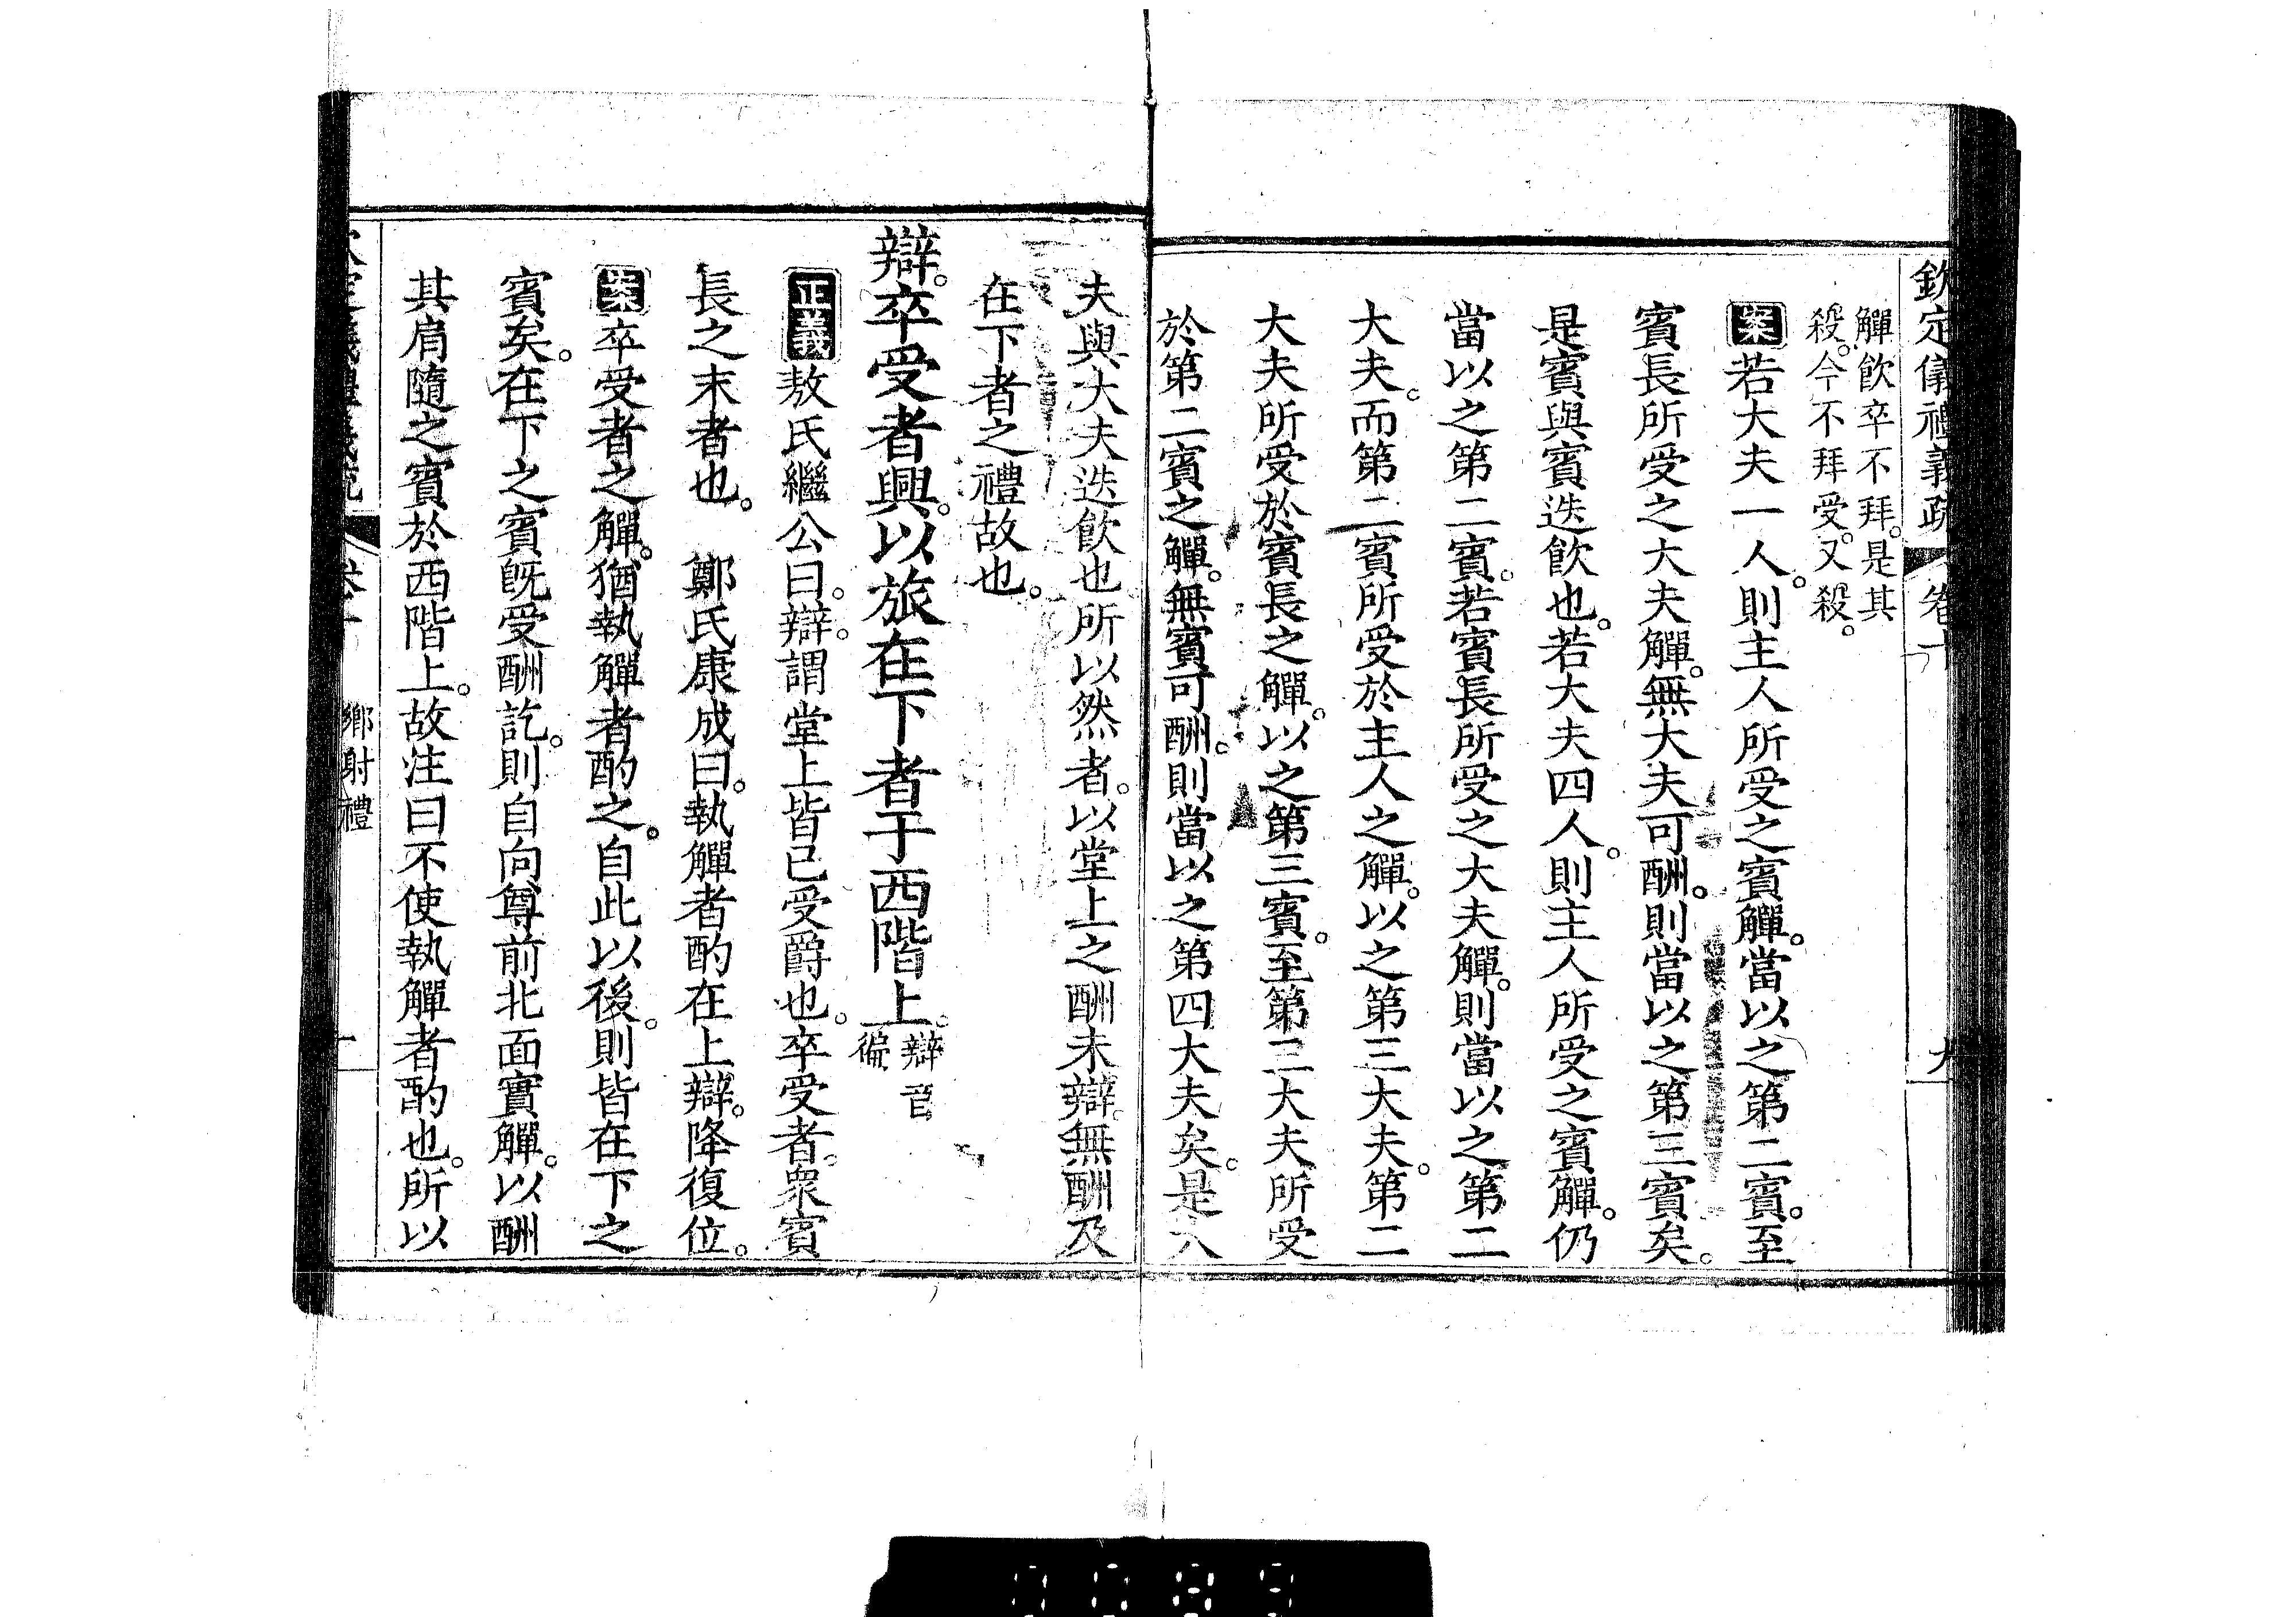 欽定儀禮義疏 卷十 九
觶飲卒不拜。是其
殺。今不拜受。又殺。
案若大夫一人。則主人所受之賓觶。當以之第二賓。至
賓長所受之大夫觶。無大夫可酬。則當以之第三賓矣。
是賓與賓迭飲也。若大夫四人。則主人所受之賓觶。仍
當以之第二賓。若賓長所受之大夫觶。則當以之第二
大夫。而第二賓所受於主人之觶。以之第三大夫。第二
大夫所受於賓長之觶。以之第三賓。至第三大夫所受
於第二賓之觶。無賓可酬。則當以之第四大夫矣。是大
夫與大夫迭飲也所以然者。以堂上之酬未辯。無酬及
在下者之禮故也。
辯。卒受者興。以旅在下者于西階上。辯音
徧
正義敖氏繼公曰。辯。謂堂上皆已受爵也。卒受者。眾賓
長之末者也。 鄭氏康成曰。執觶者酌在上辯。降復位。
案卒受者之觶。猶執觶者酌之。自此以後。則皆在下之
賓矣。在下之賓旣受酬訖。則自向尊前北面實觶。以酬
其肩隨之賓於西階上。故注曰不使執觶者酌也。所以
鄉射禮